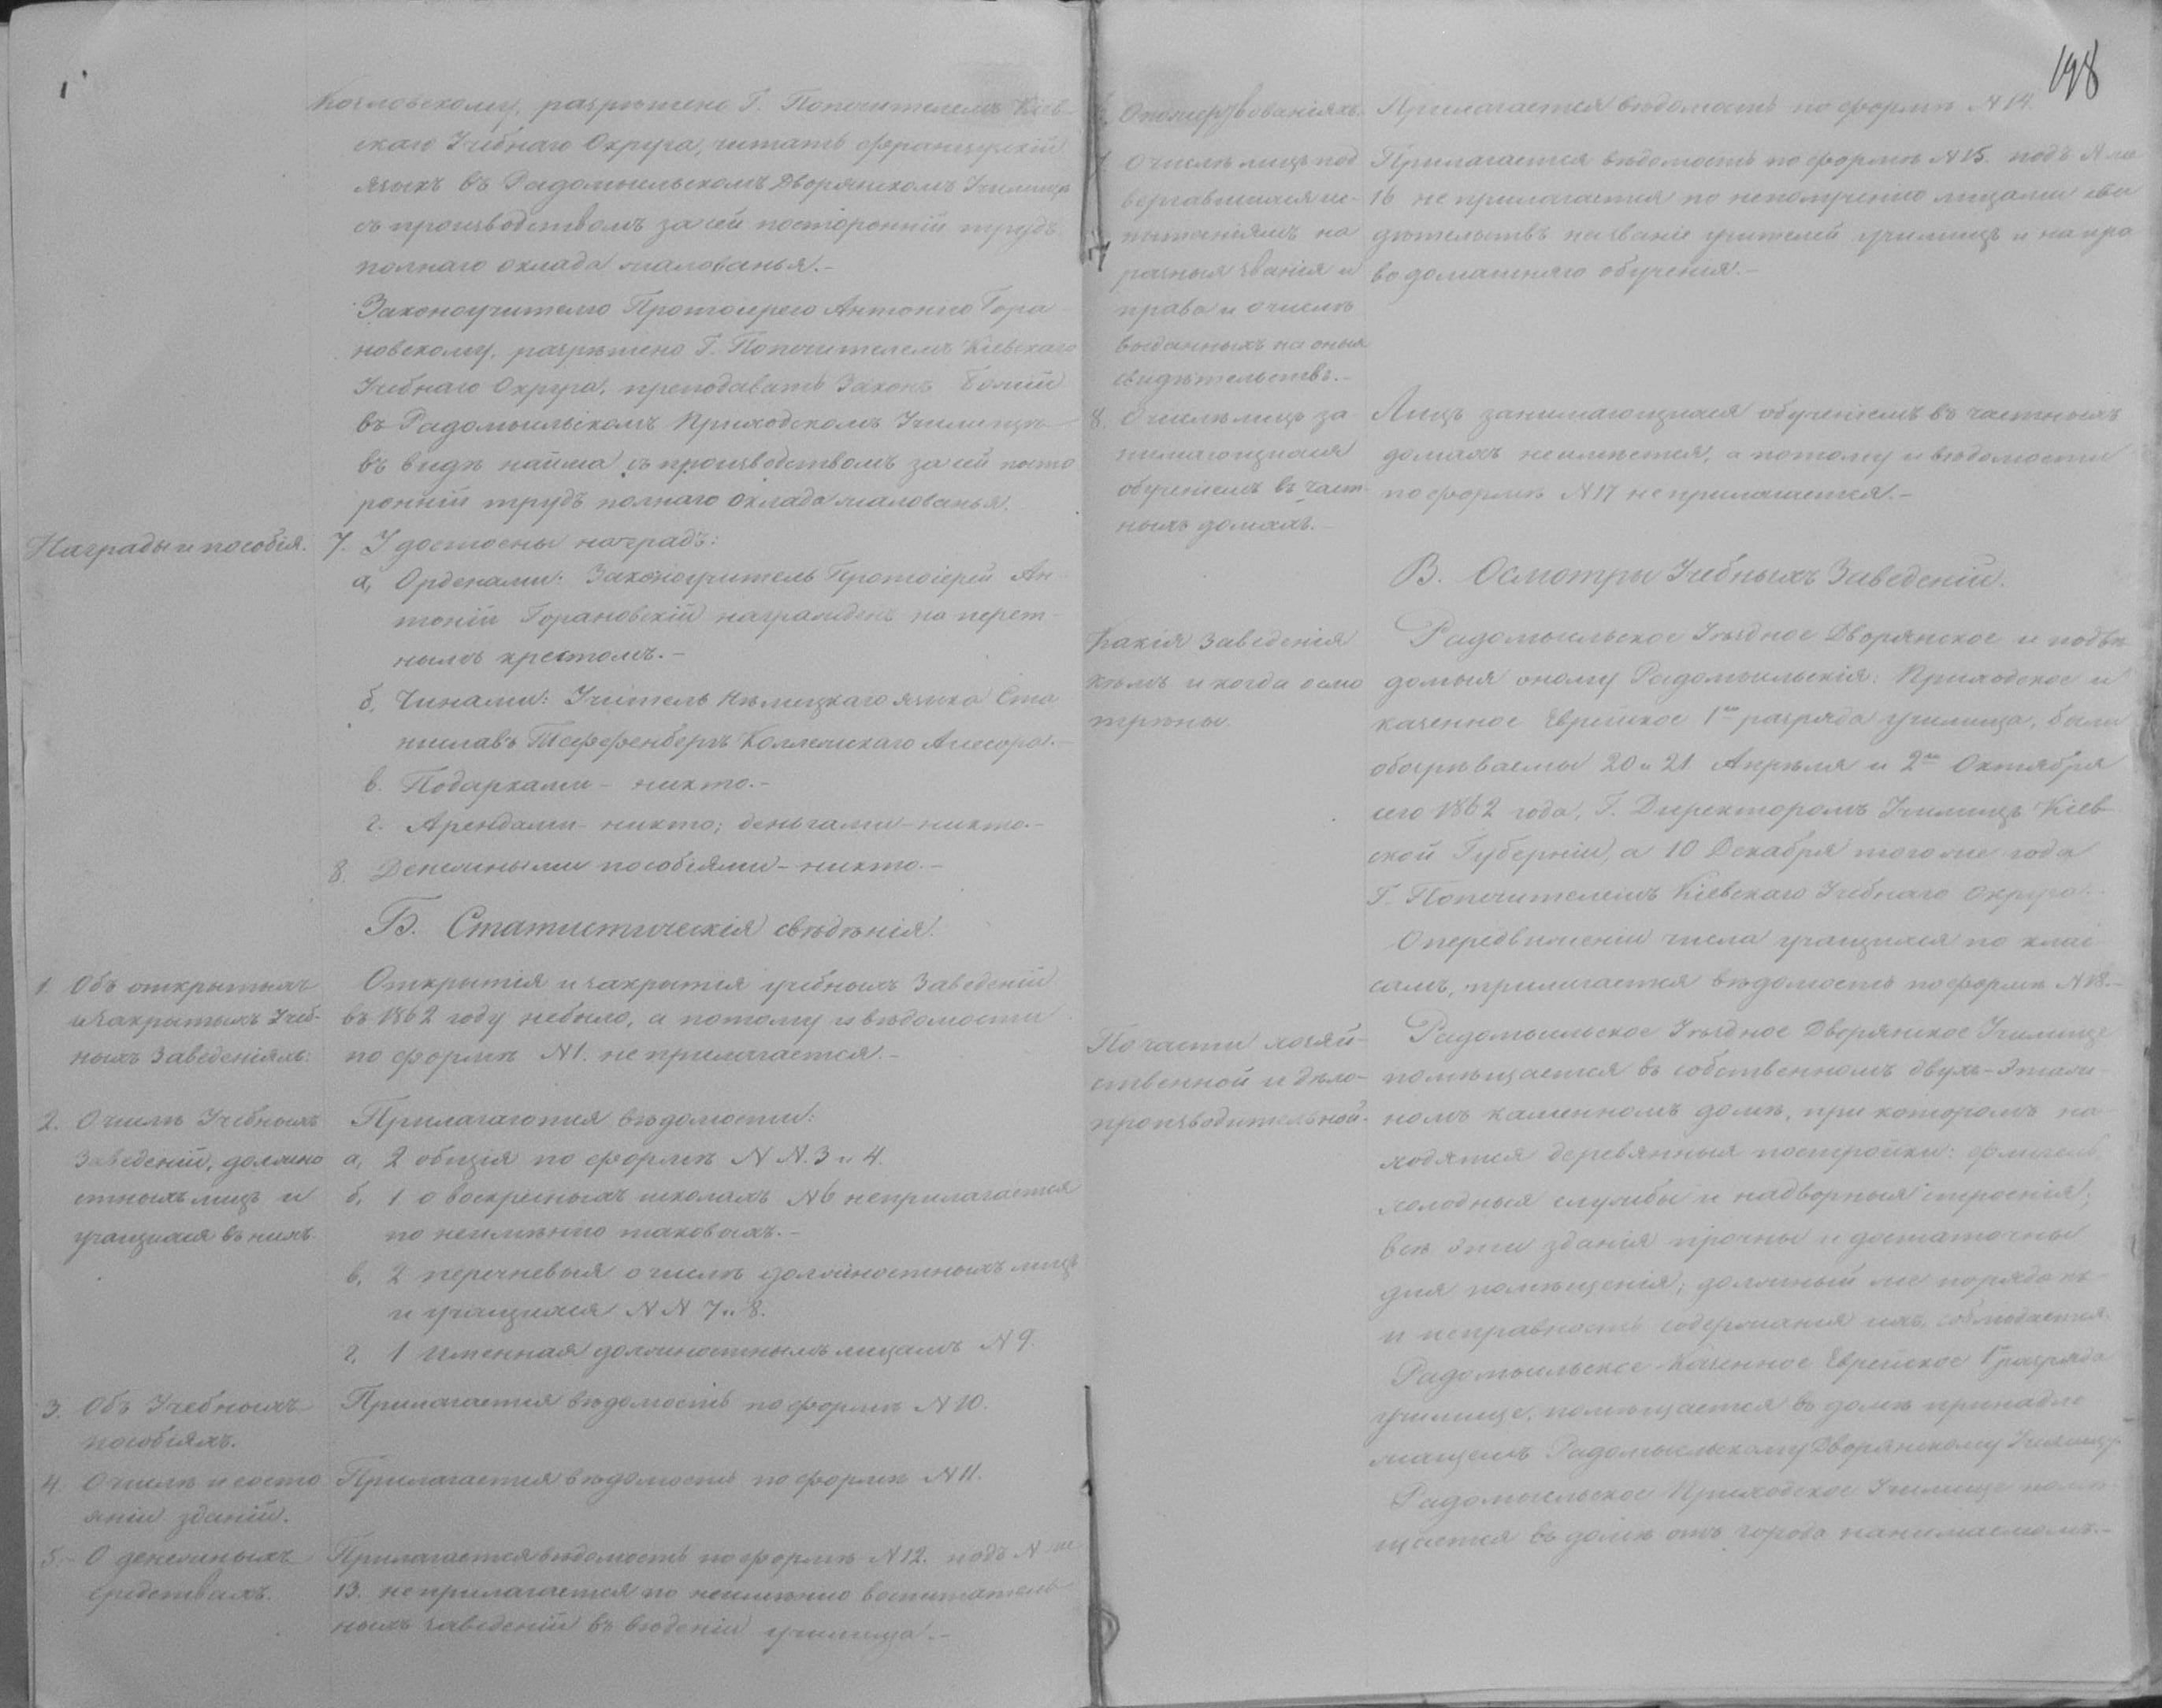 Козловскому, разрѣшено Г. Попечителемъ Кіев-
скаго Учебнаго Округа, читать французскій
языкъ въ Радомысльскомъ Дворянскомъ Училищѣ
съ производствомъ за сей посторонній трудъ
полнаго оклада жалованья.-
Законоучителю Протоіерею Антонію Гора
новскому, разрѣшено Г. Попечителемъ Кіевскаго
Учебнаго Округа, преподавать Законъ Божій
въ Радомысльскомъ Приходскомъ Училищѣ
въ видѣ найма съ производствомъ за сей посто
ронній трудъ полнаго оклада жалованья.
Награды и пособія.
7. Удостоены наградъ:
а, Орденами: Законоучитель Протоіерей Ан-
тоній Горановскій награжденъ наперст-
нымъ крестомъ.-
б, Чинами: Учитель Нѣмецкаго языка Ста
ниславъ Теффенбергъ Коллежскаго Ассесора.-
в. Подарками - никто.-
г. Арендами - никто; деньгами - никто.-
8. Денежными пособіями - никто.-
Б. Статистическія свѣдѣнія.
1. Объ открытыхъ
и закрытыхъ Учеб-
ныхъ Заведеніяхъ:
Открытія и закрытія учебныхъ Заведеній
въ 1862 году небыло, а потому и вѣдомости
по формѣ N 1. не прилагается.-
2. О числѣ Учебныхъ
Заведеній, должно
стныхъ лицъ и
учащихся въ нихъ.
Прилагаются вѣдомости:
а, 2 общія по формѣ N N. 3 и 4.
б, 1 о воскресныхъ школахъ N 6 неприлагается
по неимѣнію таковыхъ.-
в, 2 перечневыя о числѣ должностныхъ лицъ
и учащихся N N 7 и 8.
г, 1 Именная должностнымъ лицамъ N 9.
3. Объ Учебныхъ
пособіяхъ.
Прилагается вѣдомость по формѣ N 10.
4. О числѣ и состо
яніи зданій.
Прилагается вѣдомость по формѣ N 11.
5. О денежныхъ
средствахъ.
Прилагается вѣдомость по формѣ N 12. подъ N же
13. не прилагается по неимѣнію воспитатель
ныхъ заведеній въ вѣденіи училища.-
198
О пожертвованіяхъ.
Прилагается вѣдомость по формѣ N 14.
7. О числѣ лицъ под
вергавшихся ис-
пытаніямъ на
разныя званія и
права и о числѣ
выданныхъ на оныя
свидѣтельствъ.-
Прилагается вѣдомость по формѣ N 15. подъ N же
16 не прилагается по неполученію лицами сви
дѣтельствъ на званіе учителей училищъ и на пра
во домашняго обученія.-
8. О числѣ лицъ за
нимающихся
обученіемъ въ част-
ныхъ домахъ.-
Лицъ занимающихся обученіемъ въ частныхъ
домахъ неимѣется, а потому и вѣдомости
по формѣ N 17 не прилагается.-
В. Осмотры Учебныхъ Заведеній.
Какія Заведенія
кѣмъ и когда осмо
трѣны.
Радомысльское Уѣздное Дворянское и подвѣ
домыя оному Радомысльскія: Приходское и
казенное Еврейское 1го разряда училища, были
обозрѣваемы 20 и 21 Апрѣля и 2го Октября
сего 1862 года, Г. Директоромъ Училищъ Кіев
ской Губерніи, а 10 Декабря того же года
Г. Попечителемъ Кіевскаго Учебнаго Округа.
О передвиженіи числа учащихся по клас
самъ, прилагается вѣдомость по формѣ N 18.-
По части хозяй-
ственной и дѣло-
производительной.
Радомысльское Уѣздное Дворянское Училище
помѣщается въ собственномъ двухъ-этаж-
номъ каменномъ домѣ, при которомъ на
ходятся деревянныя постройки: флигель,
холодныя службы и надворныя строенія;
всѣ эти зданія прочны и достаточны
для помѣщенія; должный же порядокъ
и исправность содержанія ихъ, соблюдается.
Радомысльское Казенное Еврейское 1 разряда
училище, помѣщается въ домѣ принадле
жащемъ Радомысльскому Дворянскому Училищу.
Радомысльское Приходское Училище помѣ
щается въ домѣ отъ города нанимаемомъ.-